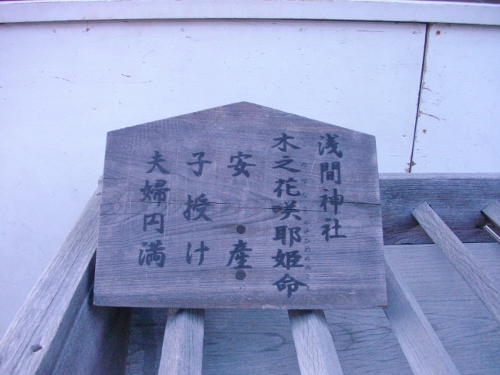 浅間神社
木之花咲耶姫命
安・産・
子授け
夫婦円満